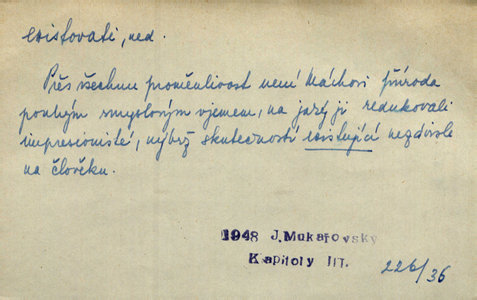 existovati, ned.
Přes všechnu proměnlivost není Máchovi příroda
pouhým smyslovým vjemem, na jaký ji redukovali
impresionisté, nýbrž skutečností existující nezávisle
na člověku.
1948 J.Mukařovský
Kapitoly III.
226/36